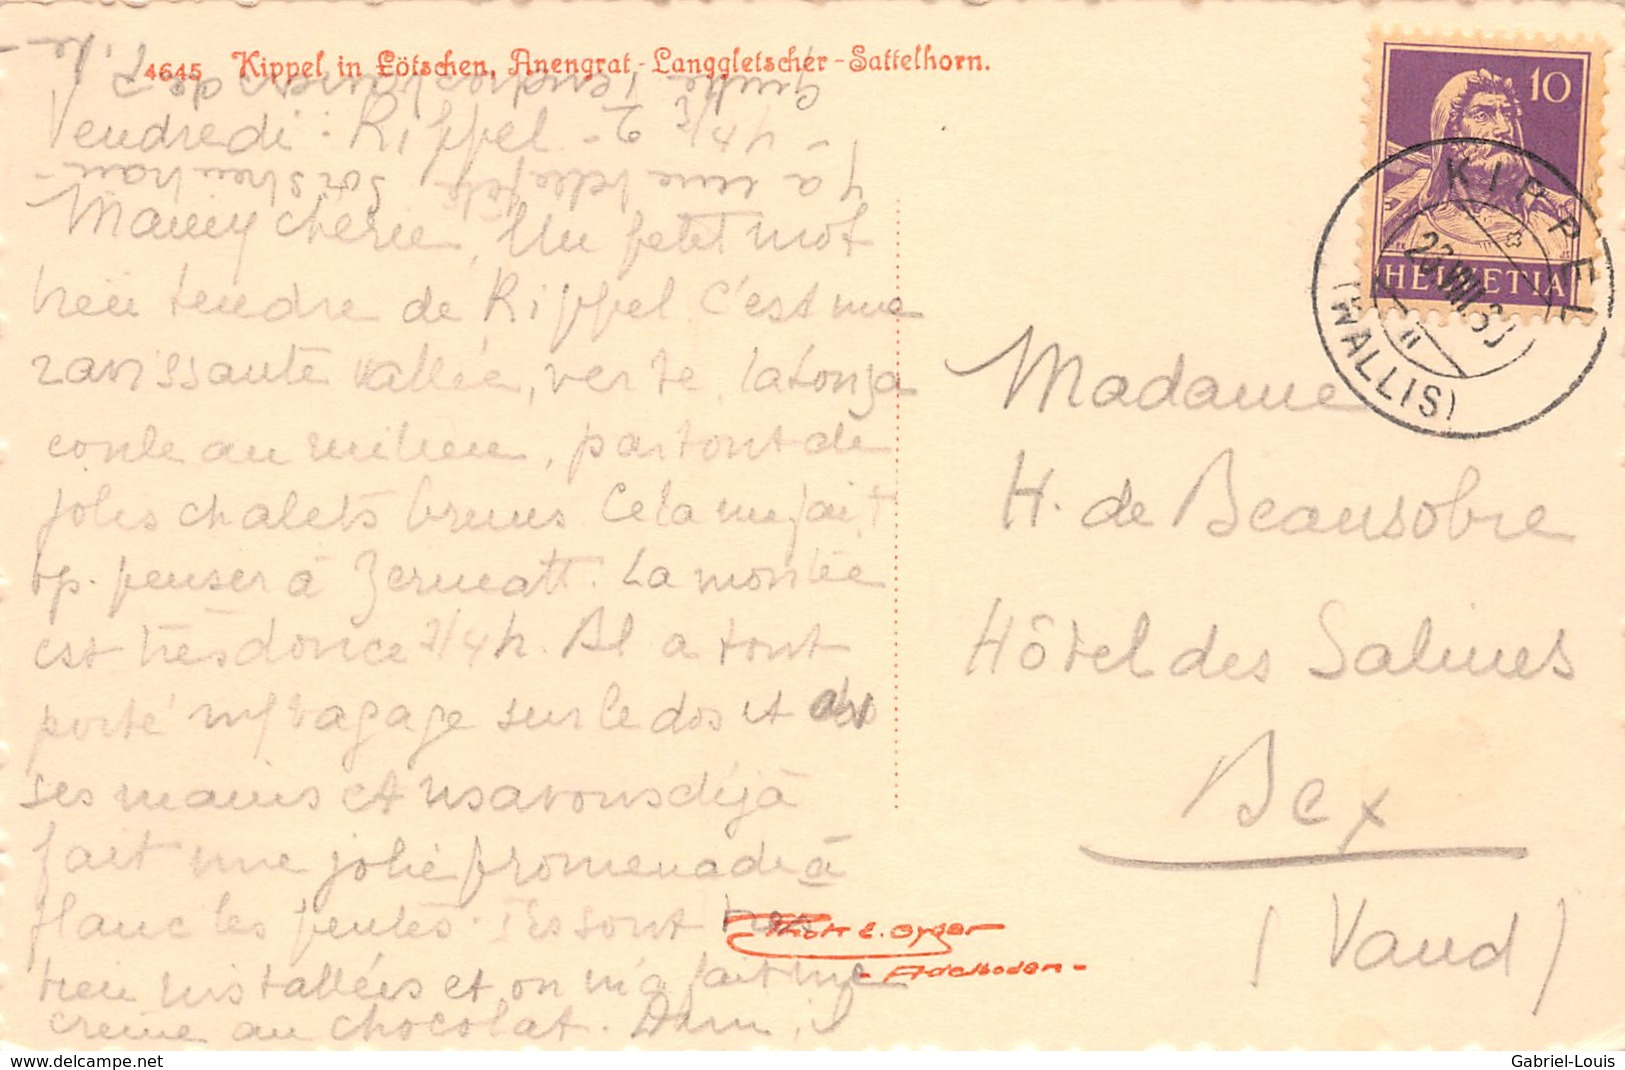 4645 Kippel in Lötschen, Anengrat - Langgletscher - Sattelhorn.
Vendredi : Kippel -
Mamy chérie, Un petit mot
bien tendre de Kippel C'est une
ravissante vallée, verte, la Lonza
coule au milieu, partout de
jolis chalets bruns. Cela me fait
bp. penser à Zermatt. La montée
est très douce /4 h. Al a tout
porté bagage sur le dos et
ses mains et ns avons déjà
fait une jolie promenade à
flanc les pentes. sont
bien installées et on m'a fait une
creme au chocolat. Dem.
y a une belle fête
tendresses de
10
HELVETIA
KIPPEL
(WALLIS)
Madame
H. de Beausobre
Hôtel des Salines
Bex
(Vaud)
Phot. E. Gyger
- Adelboden -
www.delcampe.net
Gabriel-Louis